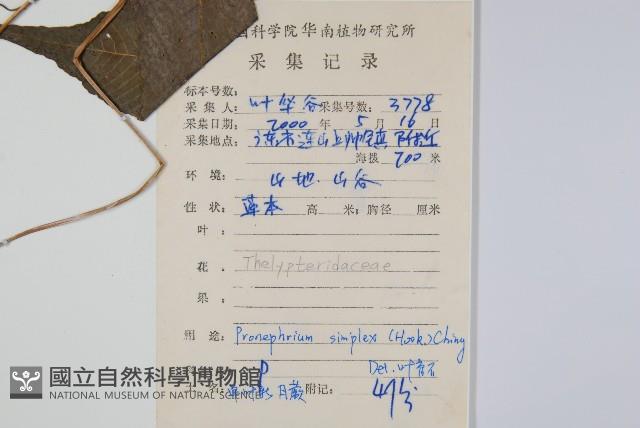 国科学院华南植物研究所
采集记录
标本号数:
采集人: 叶华谷 采集号数: 3778
采集日期: 2000 年 5 月 16 日
采集地点: 连山上帅镇
海拨 700 米
环境: 山地.山谷
性状: 草本 高 米; 胸径 厘米
叶
花 Thelypteridaceae
果
用途: Pronephrium simplex (Hook.) Ching
D Det. 叶
名: 月蕨 附记:
國立自然科學博物館
NATIONAL MUSEUM OF NATURAL SCIENCE